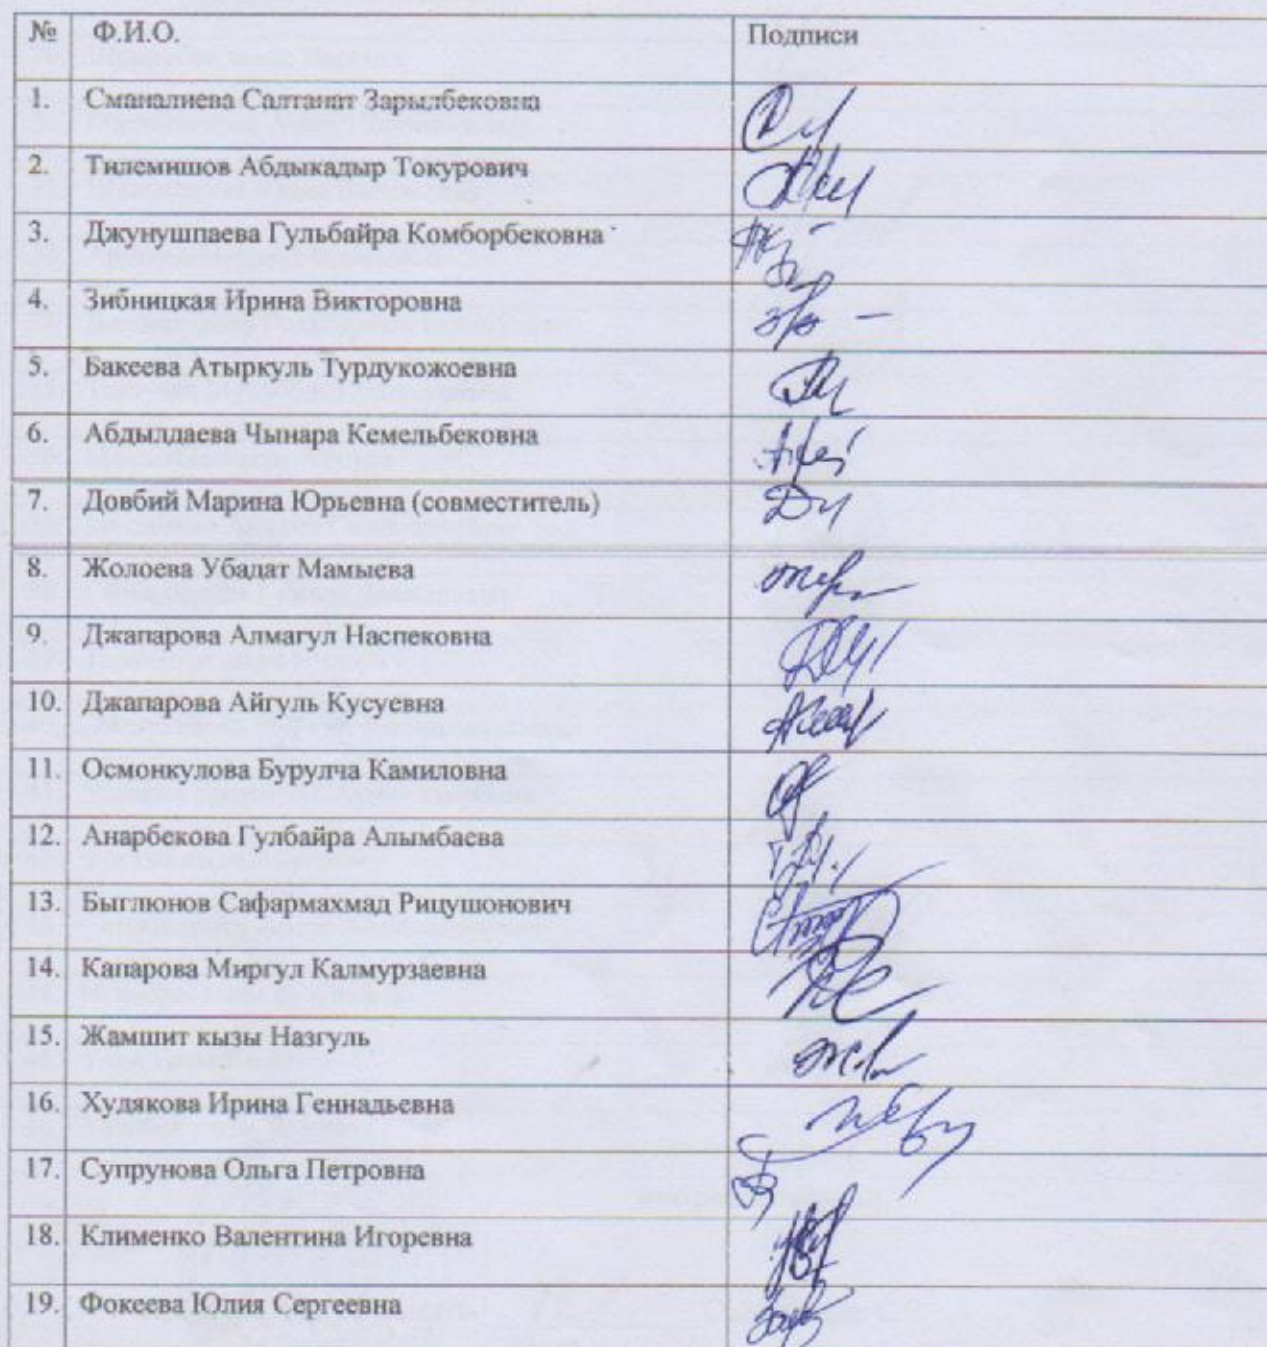 № Ф.И.О. Подписи
1. Сманалиева Салтанат Зарылбековна
2. Тилемишов Абдыкадыр Токурович
3. Джунушпаева Гульбайра Комборбековна
4. Зибницкая Ирина Викторовна
5. Бакеева Атыркуль Турдукожоевна
6. Абдылдаева Чынара Кемельбековна
7. Довбий Марина Юрьевна (совместитель)
8. Жолоева Убадат Мамыева
9. Джапарова Алмагул Наспековна
10. Джапарова Айгуль Кусуевна
11. Осмонкулова Бурулча Камиловна
12. Анарбекова Гулбайра Алымбаева
13. Быглюнов Сафармахмад Рицушонович
14. Капарова Миргул Калмурзаевна
15. Жамшит кызы Назгуль
16. Худякова Ирина Геннадьевна
17. Супрунова Ольга Петровна
18. Клименко Валентина Игоревна
19. Фокеева Юлия Сергеевна